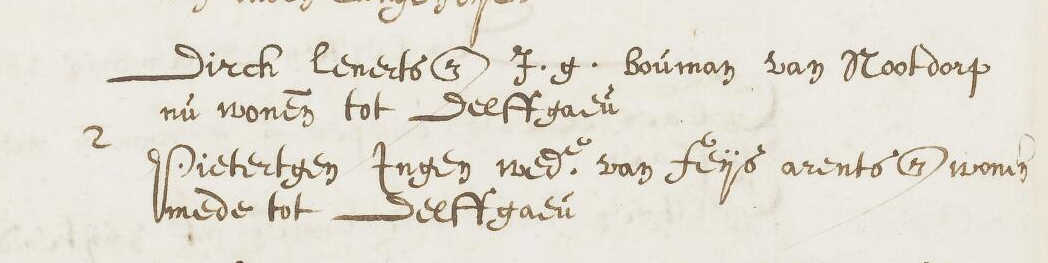 Dirck lenertsz J. g. bouman van Nootdorp
nu wonen tot Delffgaeu
2
Pietertgen Jngen wede. van feijs arentsz wonen
mede tot Delffgaeu